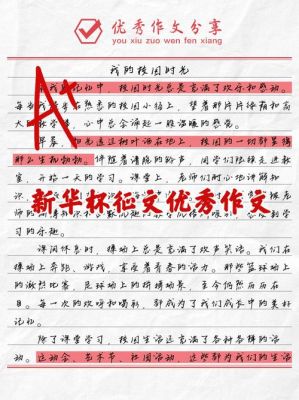 优秀作文分享
you xiu zuo wen fen xiang
我的校园时光
在我的记忆中，校园时光总是充满了欢乐和感动。
每当我
的校园小路上，望着那片片绿荫和高
大的教学楼，心中总会涌起一股温暖的感觉。
早晨，阳光透过树叶洒在地上，校园的一切都显得
那么生机勃勃。伴随着清脆的铃声，同学们陆续走进教
室，开始一天的学习。课堂上，老师们耐心地讲解知
识，
新华杯征文优秀作文
习的乐趣。
课间休息时，操场上总是充满了欢声笑语。我们在
操场上奔跑、游戏，享受着青春的活力。那些篮球场上
的激烈比赛，足球场上的拼搏场景，至今仍然历历在
目。每一次的欢呼和喝彩，都成为了我们成长中的美好
记忆。
除了课堂学习，校园生活还充满了各种各样的活
动。运动会、艺术节、社团活动，这些都为我们的生活